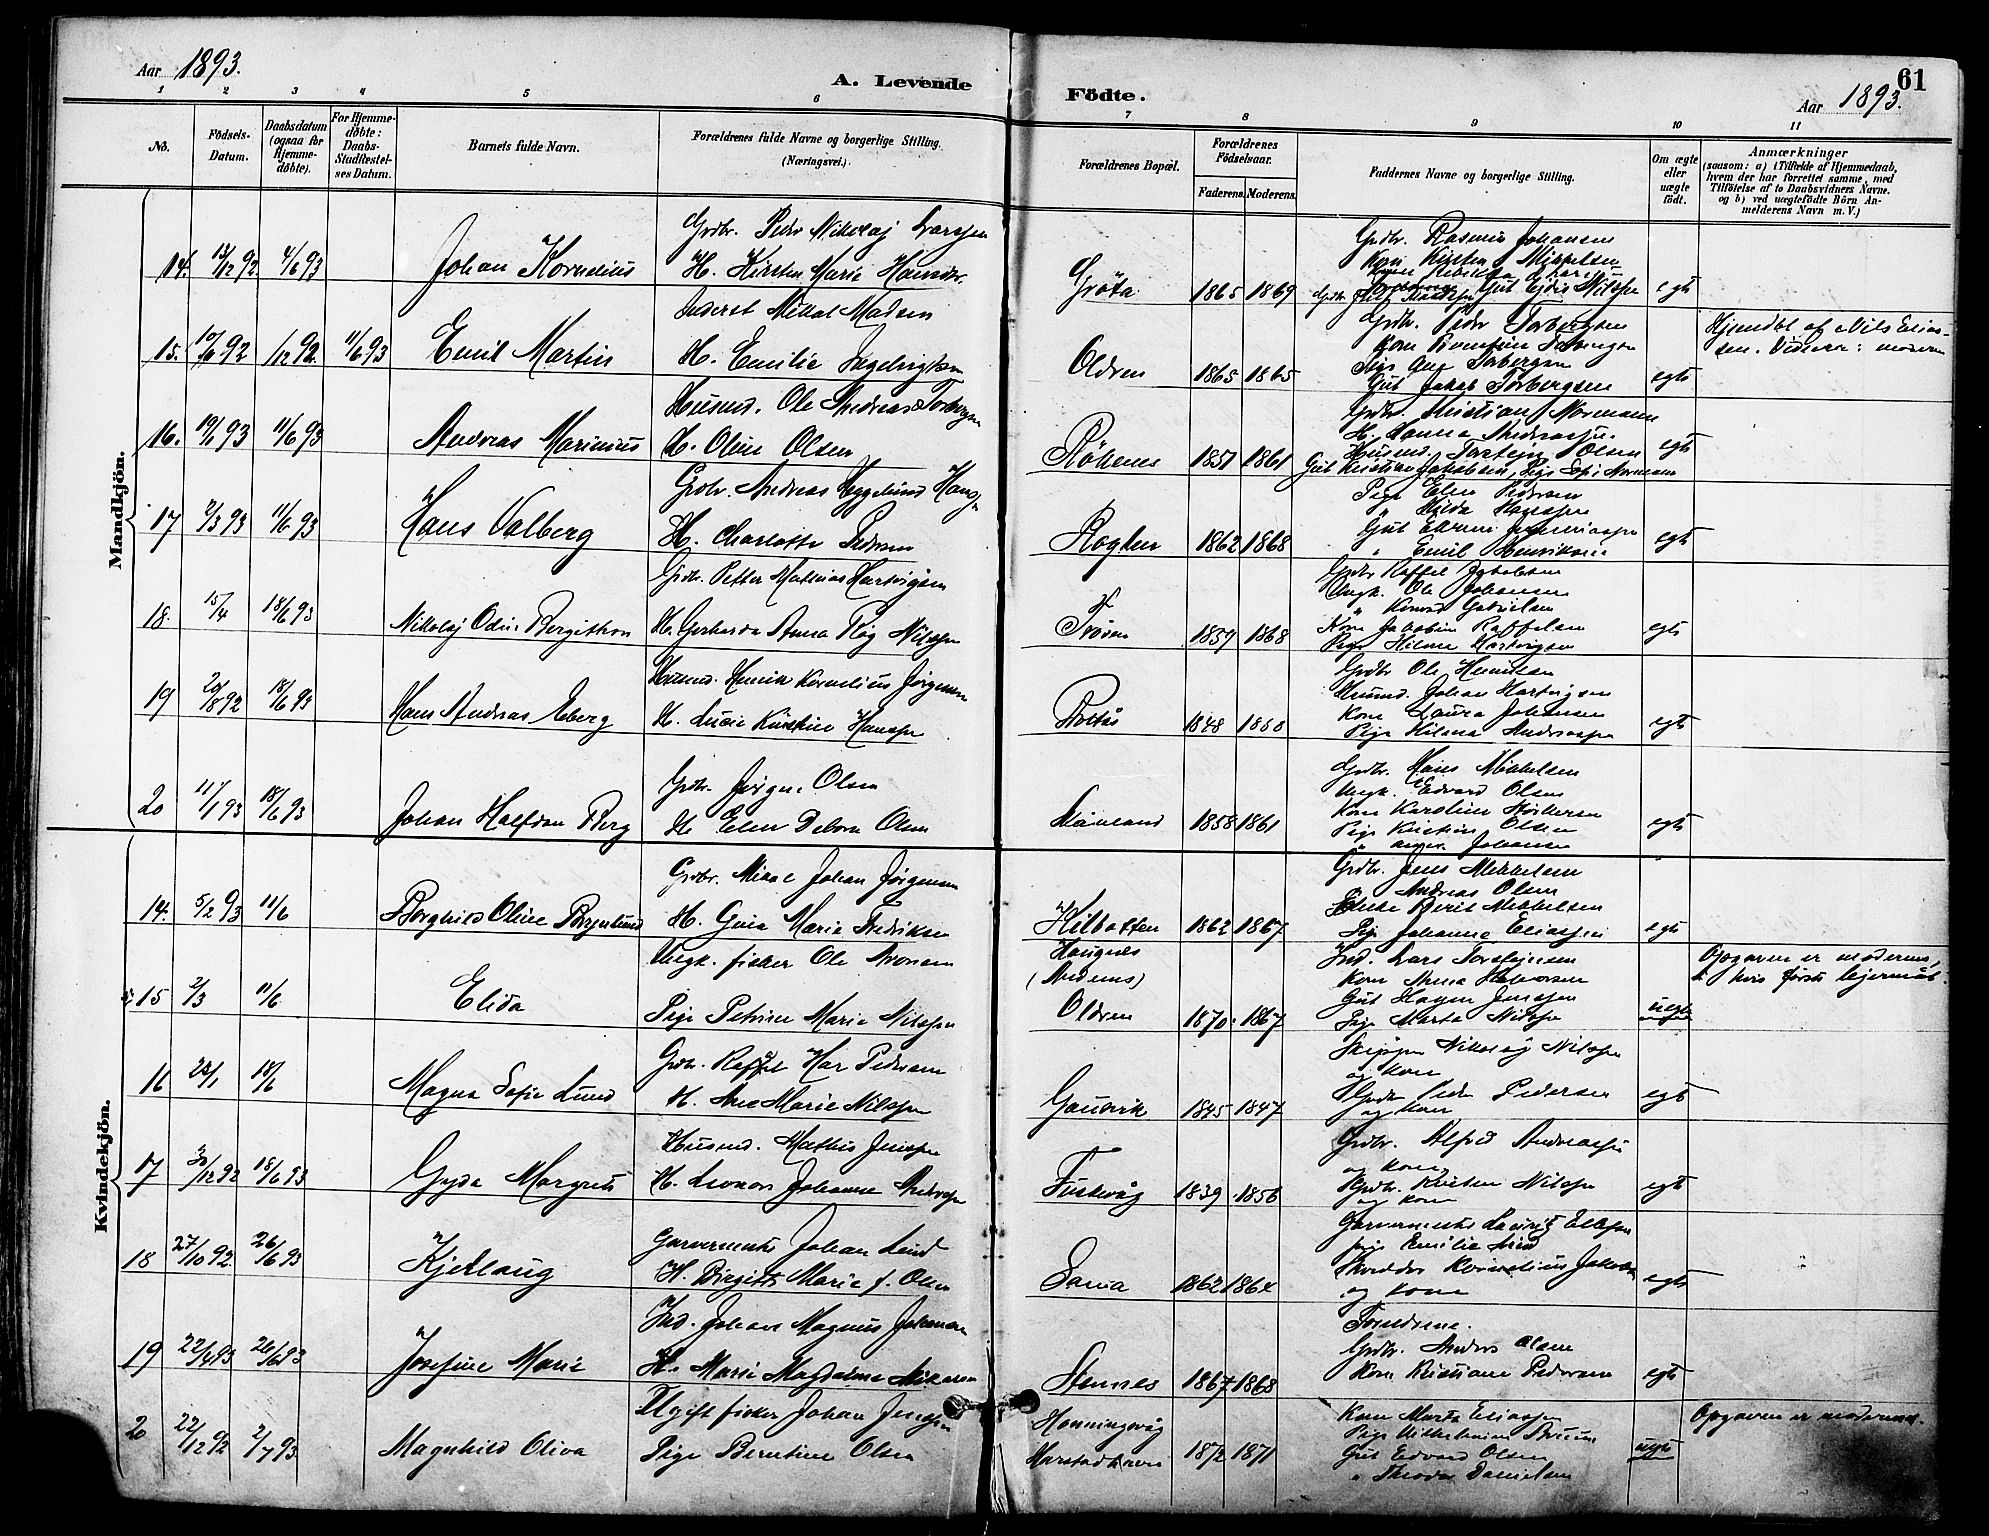 61
Aar 1893.
A. Levende
Födte.
Aar 1893.
1 2 3 4 5 6 7 8 9 10 11
No.
Födsels-Datum.
Daabsdatum (ogsaa for Hjemme-döbte).
For Hjemme-döbte: Daabs-Stadfæstel-ses Datum.
Barnets fulde Navn.
Forældrenes fulde Navne og borgerlige Stilling. (Næringsvei.)
Forældrenes Bopæl.
Forældrenes Födselsaar.
Faderens. Moderens.
Faddernes Navne og borgerlige Stilling.
Om ægte eller uægte födt.
Anmærkninger
(saasom: a) i Tilfælde af Hjemmedaab, hvem der har forrettet samme, med Tilföielse af to Daabsvidners Navne. og b) ved uægtefödte Börn An-melderens Navn m. V.)
Mandkjön.
14. 13/12 92 4/6 93 Johan Kornelius
Grdbr. Peder Nikolaj Larsen
H. Kirsten Marie Hansdr.
Gröta 1865 1869
Grdbr. Rasmus Johansen
Kone Kirsten Mikkelsen
egte
15. 10/6 92 1/12 92. 11/6 93 Emil Martin
Inderst Mikal Madsen
H. Emilie Ingebrigtsen
Oldren 1865 1865
Grdbr. Peder Torbergsen
Gut Jakob Torbergsen
egte
Hjemdbt af Nils Elias-
sen. Vidner: moderen
16. 19/1 93 11/6 93 Andreas Marinius
Husmd. Ole Andreas Torbergsen
H. Oline Olsen
Rökenes 1851 1861
Grdbr. Kristian Normann
H. Hanna Andreassen
Husmd. Torstejn Olsen
Gut Kristian Jakobsen, Pige Sofie Normann
egte
17 2/3 93 11/6 93 Hans Valberg
Grdbr. Andreas Hyggelund Hansen
H. Charlotte Pedersen
Rogten 1862 1868
Pige Elen Pedersen
" Hilda Hansen
" Emil Henriksen
egte
18. 15/4 18/6 93 Nikolaj Odin Bergithon
Grdbr. Petter Mathias Hartvigsen
H. Gerharda Anna Røg Nilssen
Trösen 1859 1868
Grdbr Raffel Jakobsen
Ungk. Ole Johansen
" Konrad Gabrielsen
Kone Jakobine Raffelsen
Pige Hilma Hartvigsen
egte
19 20/8 92 18/6 93 Hans Andreas Eberg
Husmd. Henrik Kornelius Jörgensen
H. Lucie Kirstine Hanssen
1848 1858
Grdbr Ole Henriksen
Husmd. Johan Hartvigsen
Kone Laura Johansen
Pige Hilma Andreassen
egte
20 11/1 93 18/6 93 Johan Halfdan Berg
Grdbr. Jörgen Olsen
H. Elen Debora Olsen
1858 1861
Grdbr. Hans Mikkelsen
Ungk. Edvard Olsen
Pige Kristine Olsen
egte
Kvindekjön.
14. 5/2 93 11/6 Borghild Oline Bergelund
Grdbr. Mikal Johan Jörgensen
H. Gina Marie Fredriksen
Kilbotten 1862 1867
Grdbr. Jens Mikkelsen
Andreas Olsen
Enke Berit Mikkelsen
Pige Johanna Eliassen
egte
15 2/3 11/6 Elida
Ungk. fisker Ole Aronsen
Pige Petrine Marie Nilssen
Haugnes
(Andenes)
Oldren 1870. 1867
Ind. Lars Torstejnsen
Kone Anna Halvorsen
Gut Hagen Jenssen
Pige Marta Nilssen
uegte
Opgaven er moderens,
hvis første lejermål.
16 28/1 18/6 Magna Sofie Lund
Grdbr. Raffel Har Pedersen
H. Ane Marie Nilssen
Gausvik 1845 1847
Skipper Nikolaj Nilssen
og kone
Grdbr Peder Pedersen
og kone
egte
17 30/12 92 18/6 93 Gyda Margrete
Husmd. Mathis Jenssen
H. Leonore Johanne Andersen
Fuskevåg 1839 1856
Grdbr. Alfred Andreassen
og kone
Grdbr. Kristen Nilssen
og kone
egte
18 27/10 92 26/6 93 Kjellaug
Garvermester Johan Lind
H. Birgitte Marie f. Olsen
Sama 1862 1864
Garvermester Lauritz Ellefsen
pige Emilie Lind
Skrædder Kornelius Jakobsen
og kone
egte
19 22/4 93 26/6 93 Josefine Marie
Ind. Johan Magnus Johansen
H. Marie Magdalena Nilsen
Stennes 1867 1868
Forældrene.
Grdbr. Anders Olsen
Kone Kristiane Pedersen
egte
20 22/12 92 2/7 93 Magnhild Oliva
Ugift fisker Johan Jenssen
Pige Berntine Olsen
Honningsvåg
Harstadhavn 1872 1871
Kone Marta Eliassen
Pige Vilhelmine Bruun
Gut Edvard Olsen
" Theodor Danielsen
uegte
Opgaven er moderens.